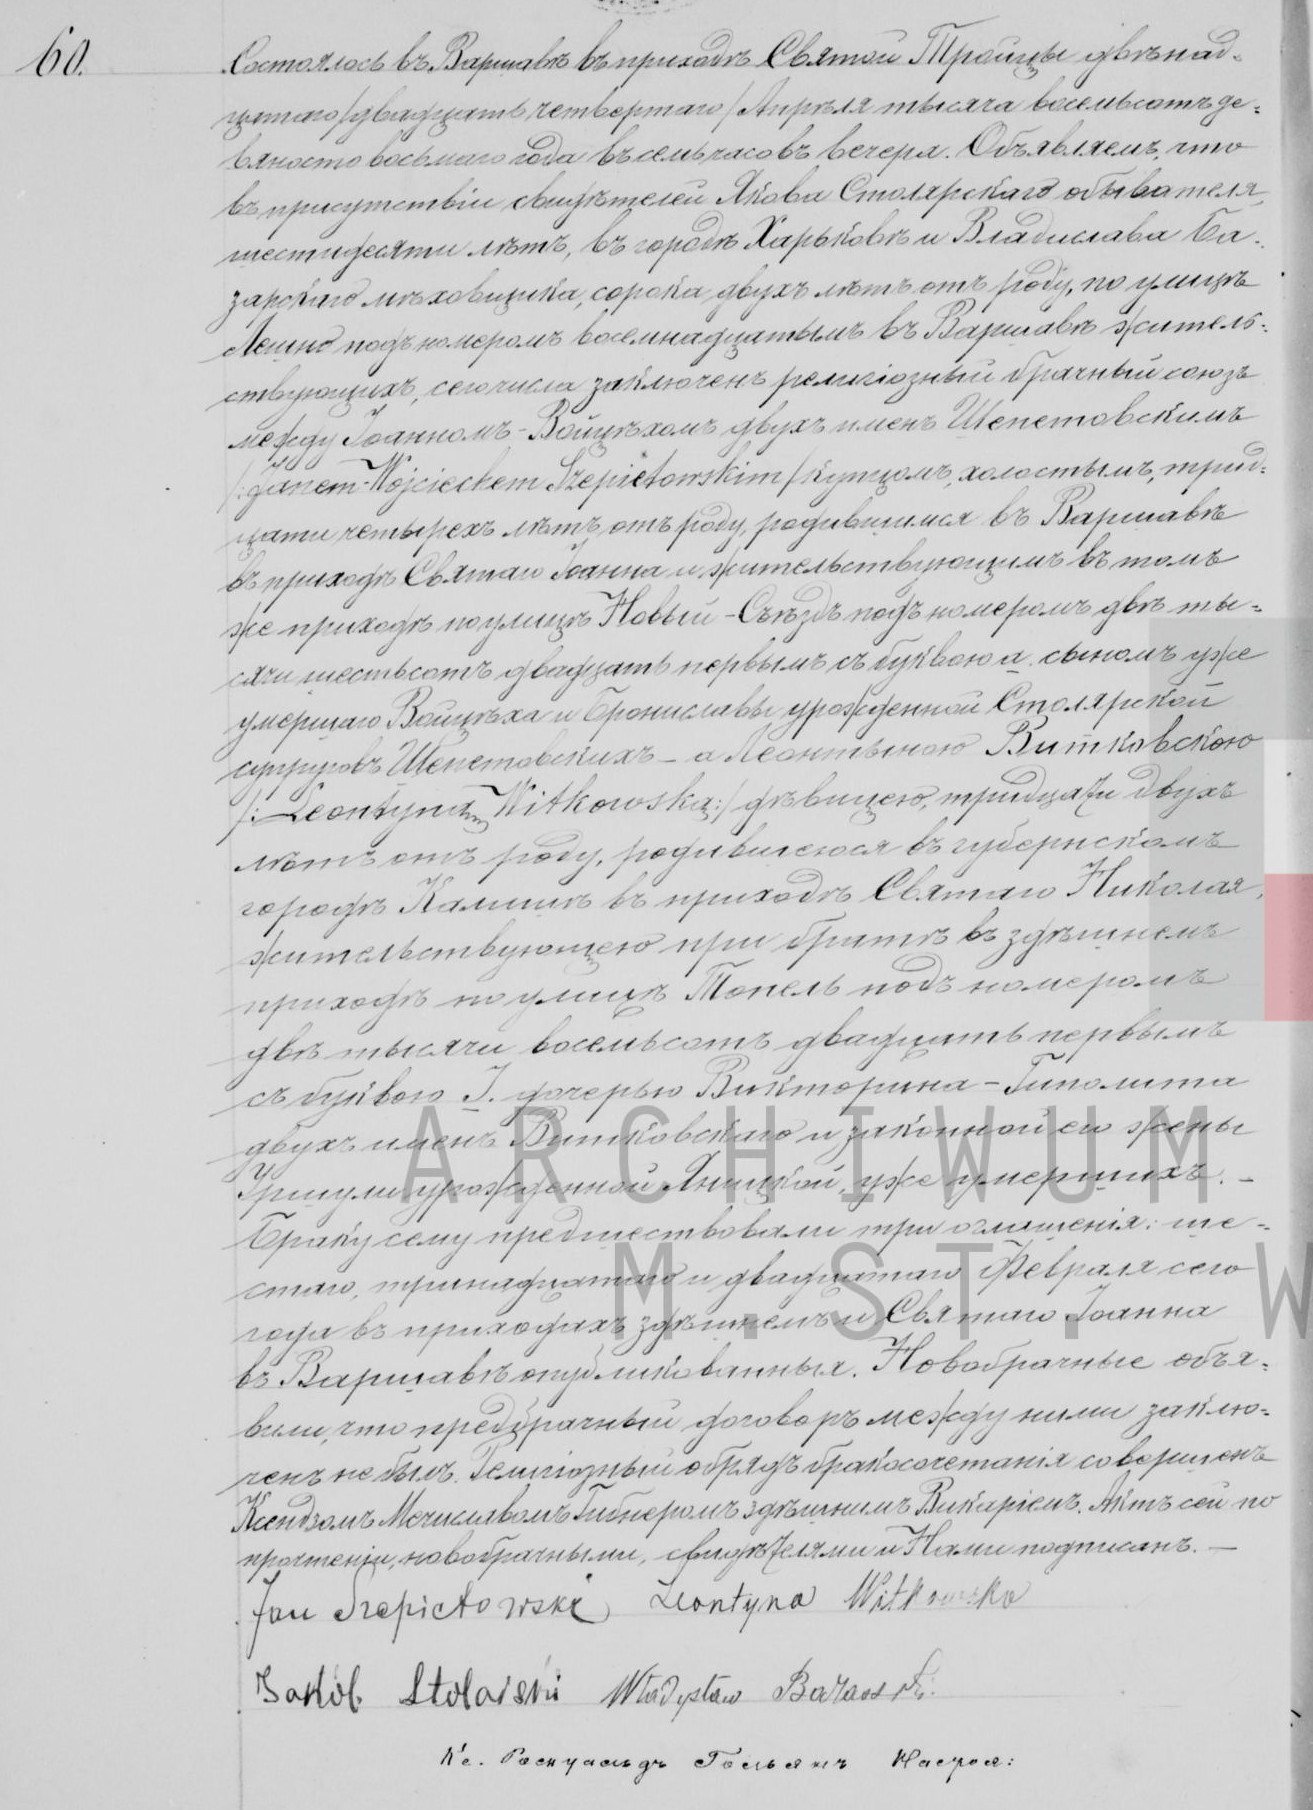 60.
Состоялось въ Варшавѣ въ приходѣ Святой Троицы двѣнад-
цатаго /двадцать четвертаго/ Апрѣля тысяча восемьсотъ де-
вяносто восьмаго года въ семь часовъ вечера. Объявляемъ, что
въ присутствіи свидѣтелей Якова Столярскаго обывателя,
шестидесяти лѣтъ, въ городѣ Харьковѣ и Владислава Ба-
зарскаго мѣховщика, сорока двухъ лѣтъ отъ роду, по улицѣ
Лешно подъ номеромъ восемнадцатымъ въ Варшавѣ житель-
ствующихъ, сего числа заключенъ религіозный брачный союзъ
между Іоанномъ-Войцѣхомъ двухъ именъ Шепетовскимъ
/:Janem-Wojciechem Szepietowskim/ купцомъ, холостымъ, трид-
цати четырехъ лѣтъ отъ роду, родившимся въ Варшавѣ
въ приходѣ Святаго Іоанна и жительствующимъ въ томъ
же приходѣ по улицѣ Новый-Съѣздъ подъ номеромъ двѣ ты-
сячи шестьсотъ двадцать первымъ съ буквою а. сыномъ уже
умершаго Войцѣха и Брониславы урожденной Столярской
супруговъ Шепетовскихъ - а Леонтыною Витковскою
/:Leontyną Witkowską:/ дѣвицею, тридцати двухъ
лѣтъ отъ роду, родившеюся въ губернскомъ
городѣ Калишѣ въ приходѣ Святаго Николая,
жительствующею при братѣ въ здѣшнемъ
приходѣ по улицѣ Топель подъ номеромъ
двѣ тысячи восемьсотъ двадцать первымъ
съ буквою I. дочерью Викторина-Гиполита
двухъ именъ Витковскаго и законной его жены
Уршули урожденной Яницкой, уже умершихъ. -
Браку сему предшествовали три оглашенія: ше-
стаго, тринадцатаго и двадцатаго Февраля сего
года въ приходахъ здѣшнемъ и Святаго Іоанна
въ Варшавѣ опубликованныя. Новобрачные объя-
вили, что предбрачный договоръ между ними заклю-
ченъ не былъ. Религіозный обрядъ бракосочетанія совершенъ
Ксендзомъ Мечиславомъ Гибнеромъ здѣшнимъ Викаріемъ. Актъ сей по
прочтеніи, новобрачными, свидѣтелями и Нами подписанъ. -
Jan Szepietowski Leontyna Witkowska
Jakób Stolarski Władysław Bazarski.
Кс.
ARCHIWUM
M. ST. W